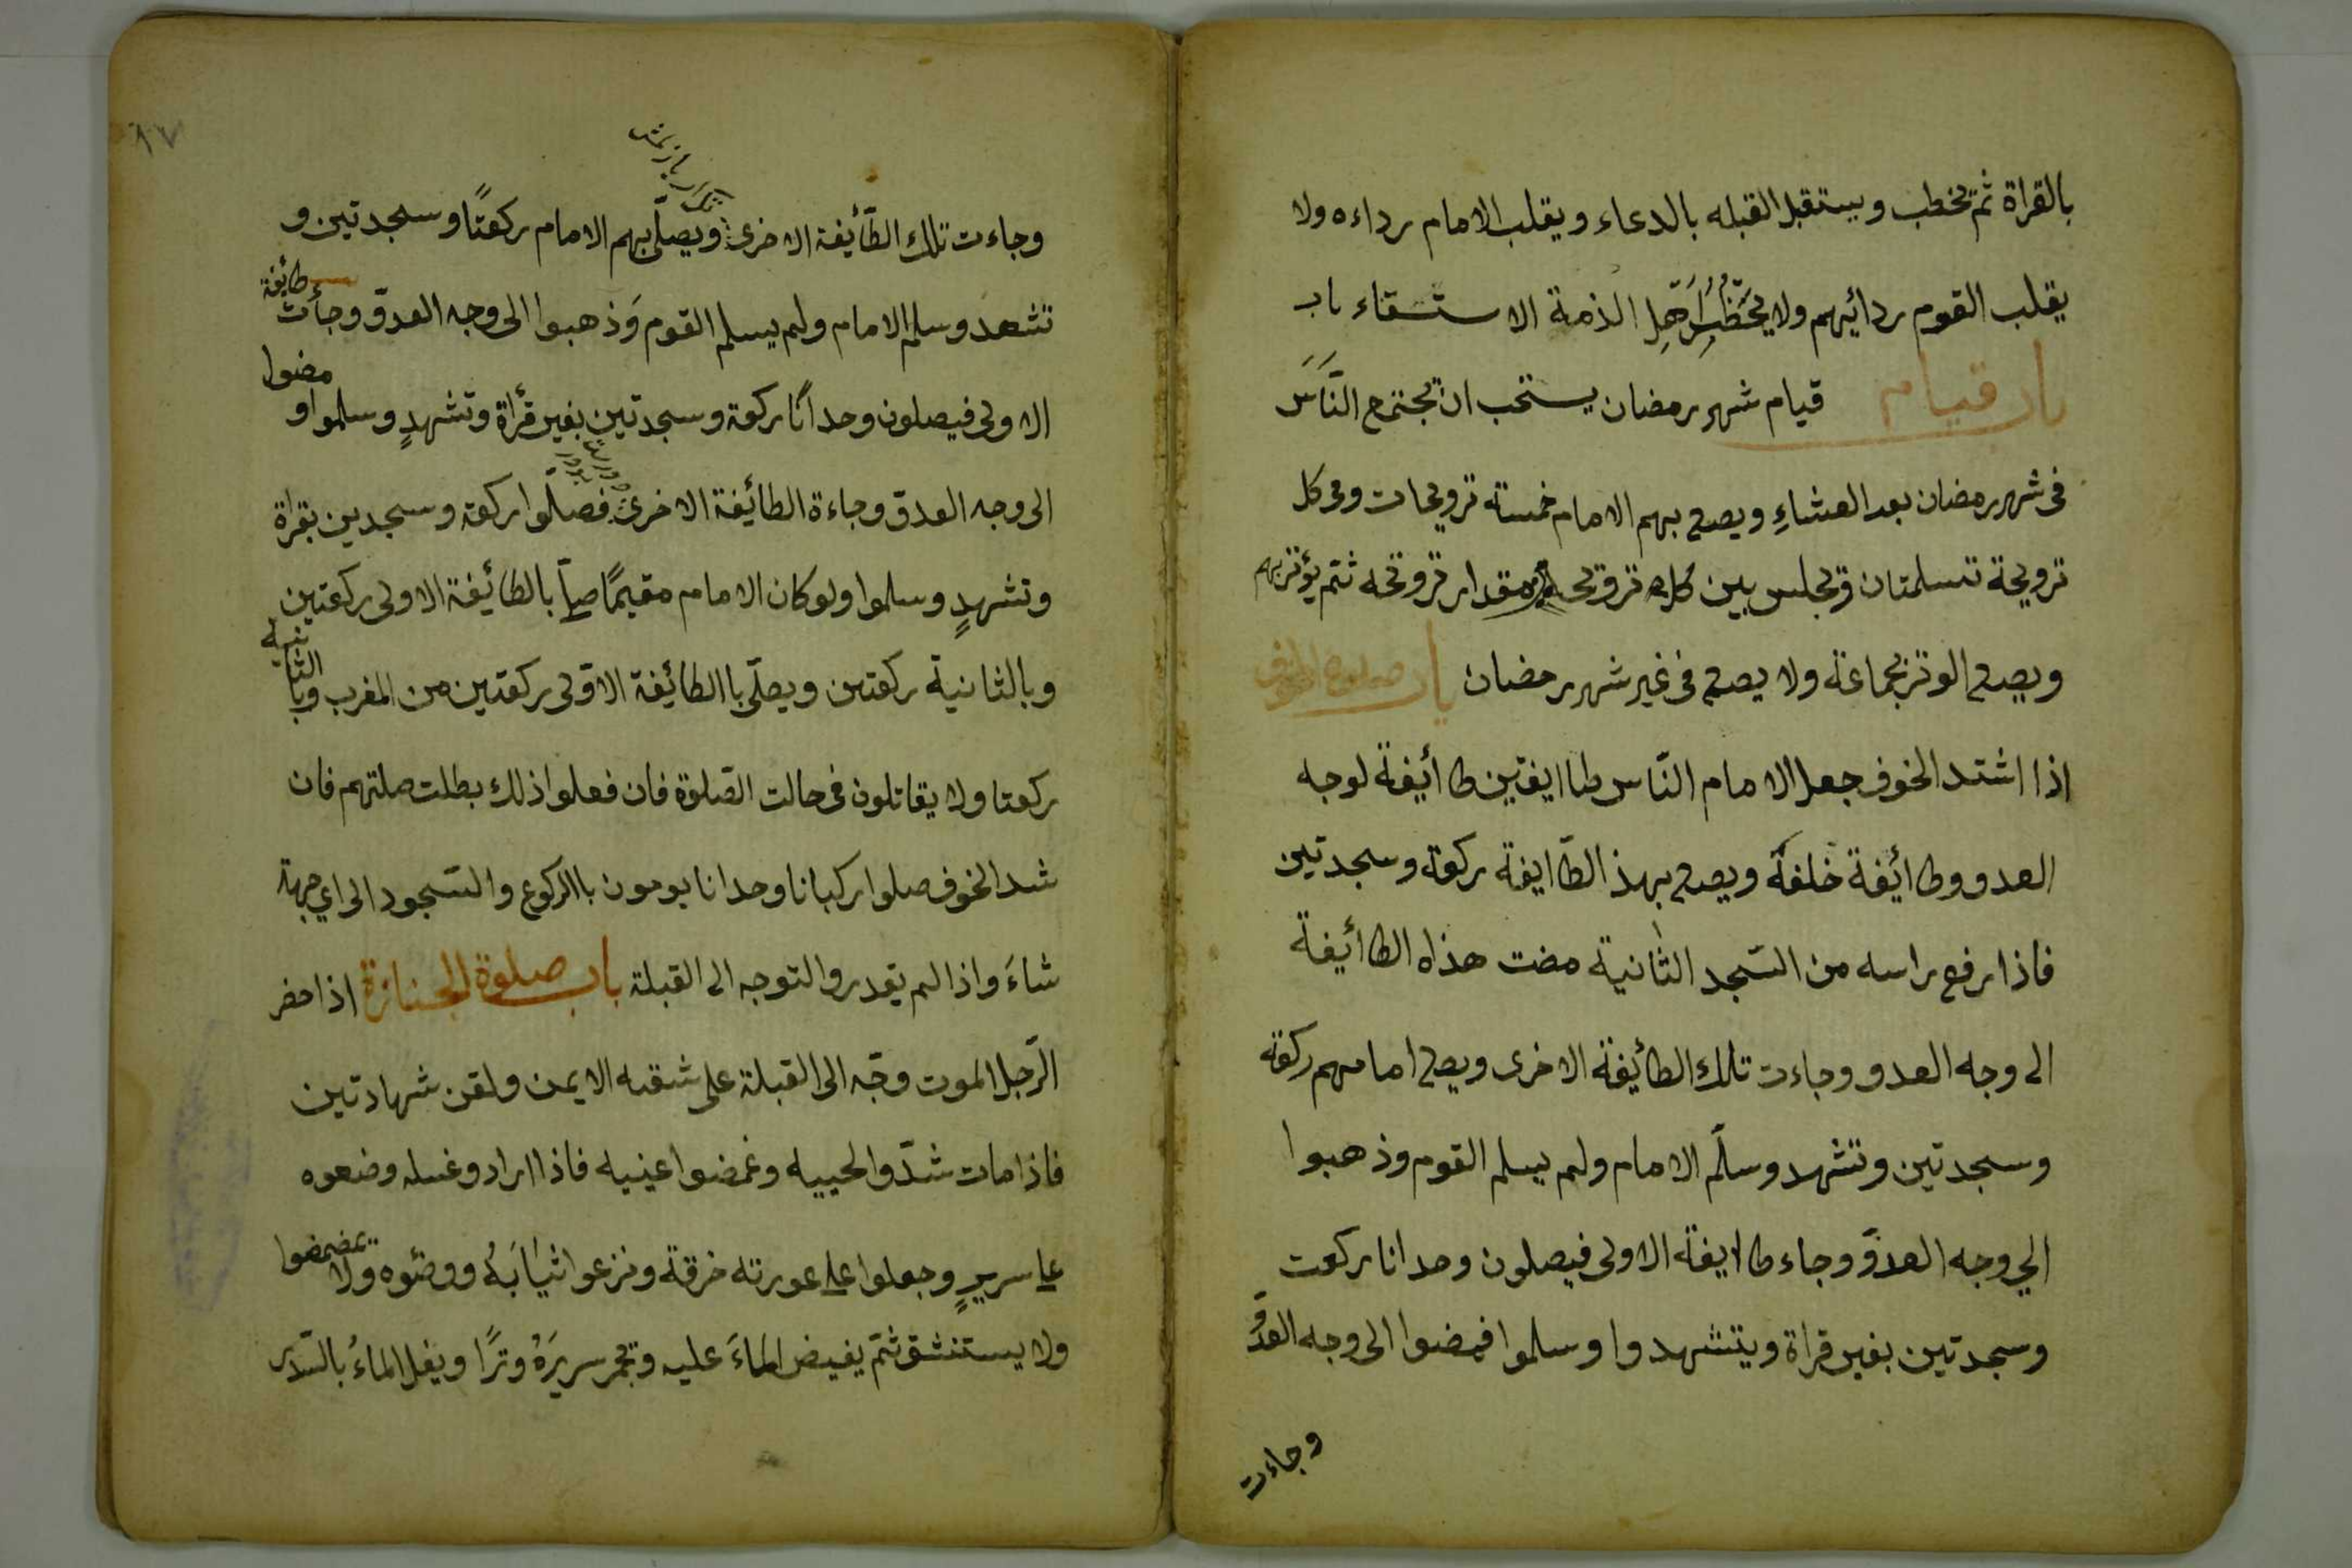 بالقراة ثم يخطب ويستقبل القبله بالدعاء ويقلب الامام رداءه ولا
يقلب القوم ردائيهم ولا اهل الذمة الاستسقاء باب
باب قيام قيام شهر رمضان يستحب ان يجتمع النَّاسَ
فى شهر رمضان بعد العشاءِ ويصلى بهم الامام خمسة ترويحات وفى كل
ترويحة تسلمتان ويجلس بين كل ترويحه مقدار ترويحه ثم يؤتر بهم
ويصلى الوتر بجماعة ولا يصلى فى غير شهر رمضان باب صلوة الخوف
اذا اشتد الخوف جعل الامام النّاس طاايفتين طاأيفة لوجه
العدو وطاأيفة خلفه ويصلى بهذ الطّاايفة ركعة وسجدتين
فاذا رفع راسه من السّجد الثانية مضت هذاه الطاأيفة
الى وجه العدو وجاءت تلك الطاأيفة الاخرى ويصلى امامهم ركعة
وسجدتين وتشهد وسلّم الامام ولم يسلم القوم وذهبوا
الي وجه العدوّ وجاء طاايفة الاولى فيصلون وحدانا ركعت
وسجدتين بغير قراة ويتشهدوا وسلموا فمضوا الى وجه العدوّ
وجاءت
٨٧
وجاءت تلك الطّائيفة الاخرى ويصلّى بهم الامام ركعتًا وسجدتين و
تشهد وسلم الامام ولم يسلم القوم وَذهبوا الى وجه العدوّ وجأت طايفة
الاولى فيصلون وحدانًا ركعة وسجدتين بغير قرأة وتشهدٍ وسلموا و مضوا
الى وجه العدوّ وجاءة الطائيفة الاخرى فصلّوا ركعة وسجدين بقراة
وتشهدٍ وسلموا ولو كان الامام مقيمًا صلّى بالطائيفة الاولى ركعتين
وبالثانية ركعتين ويصلّى باالطائيفة الاوّلى ركعتين من المغرب وبا الثانية
ركعتا ولا يقاتلون فى حالت الصّلوة فان فعلوا ذلك بطلت صلتهم فان
شد الخوف صلوا ركبانا وحدانا يومون باالركوع والسّجود الى اي جهة
شاءَ واذا لم يقدروا التوجه الى القبلة باب صلوة الجنازة اذا حضر
الرّجل الموت وجّه الى القبلة على شقه الايمن ولقن شهادتين
فاذا مات شدّوا لحييه وغمضوا عينيه فاذا ارادو غسله وضعوه
على سريرٍ وجعلوا على عورته خرقة ونزعوا ثيابَهُ ووضئوه ولا يمضمضوا
ولا يستنشق ثمّ يفيض الماءَ عليه وتجمر سريرَهُ وترًا ويغل الماءُ بالسّدر